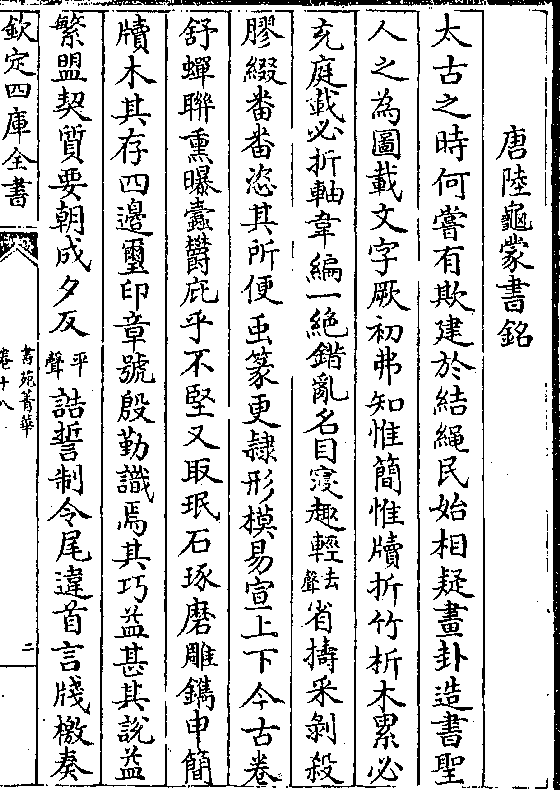 唐陸龜蒙書銘
太古之時何嘗有欺建於結繩民始相疑畫卦造書聖
人之為圖載文字厥初弗知惟簡惟牘折竹折木累必
充庭載必折軸韋編一絶錯亂名目寖趣輕去聲省擣采剝殺
膠綴番番恣其所便虫篆更隷形模易宣上下今古卷
舒蟬聯熏曝蠧欝庇乎不堅又取珉石琢磨雕鐫申簡
牘木其存四邉璽印章號殷勤識焉其巧益甚其說益
繁盟契質要朝成夕反平聲誥誓制令尾違首言牋檄奏
欽定四庫全書
書苑菁華
卷十八
二